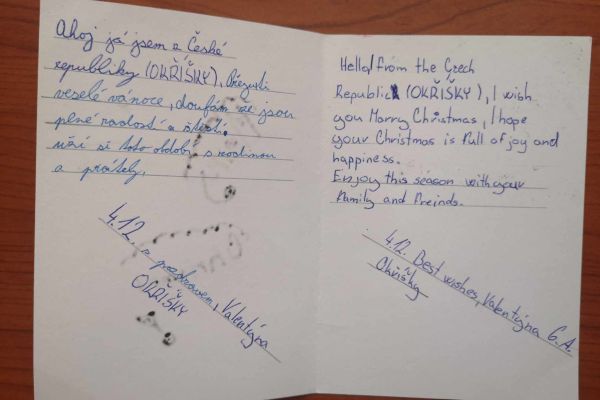 Ahoj já jsem z České
republiky (OKŘÍŠKY), Přeji
veselé vánoce, doufám že jsou
plné radosti a štěstí.
užij si toto období s rodinou
a přátely.
4.12. s pozdravem, Valentýna
OKŘÍŠKY
Hello from the Czech
Republic (OKŘÍŠKY), I wish
you Marry Christmas, I hope
your Christmas is full of joy and
happiness.
Enjoy this season with your
family and freinds.
4.12. Best wishes, Valentýna 6.A.
Okříšky